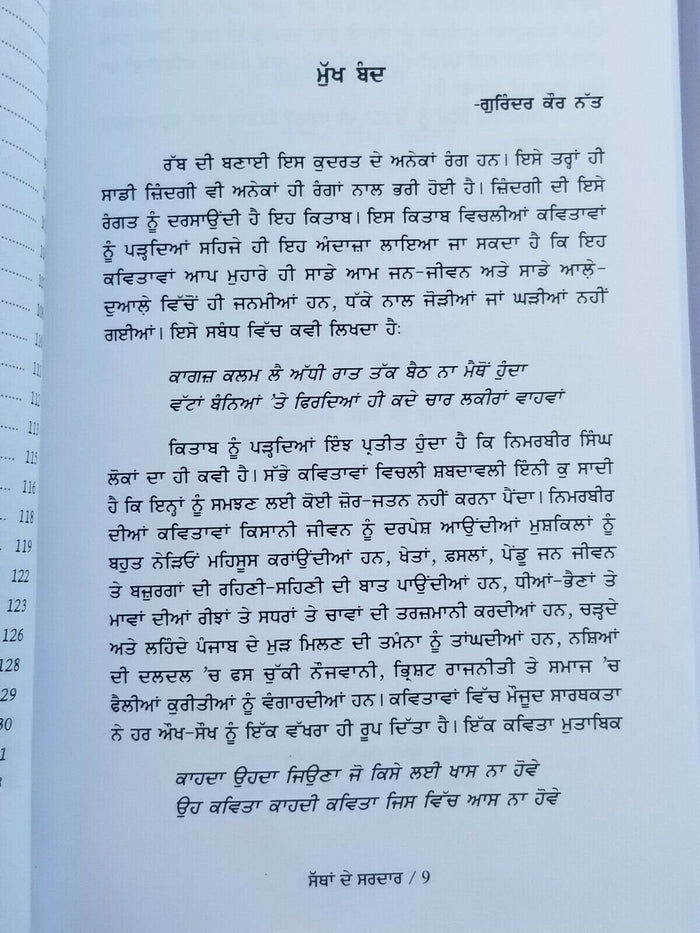 ਮੁੱਖ ਬੰਦ
-ਗੁਰਿੰਦਰ ਕੌਰ ਨੱਤ
ਰੱਬ ਦੀ ਬਣਾਈ ਇਸ ਕੁਦਰਤ ਦੇ ਅਨੇਕਾਂ ਰੰਗ ਹਨ। ਇਸੇ ਤਰ੍ਹਾਂ ਹੀ
ਸਾਡੀ ਜ਼ਿੰਦਗੀ ਵੀ ਅਨੇਕਾਂ ਹੀ ਰੰਗਾਂ ਨਾਲ ਭਰੀ ਹੋਈ ਹੈ। ਜ਼ਿੰਦਗੀ ਦੀ ਇਸੇ
ਰੰਗਤ ਨੂੰ ਦਰਸਾਉਂਦੀ ਹੈ ਇਹ ਕਿਤਾਬ। ਇਸ ਕਿਤਾਬ ਵਿਚਲੀਆਂ ਕਵਿਤਾਵਾਂ
ਨੂੰ ਪੜ੍ਹਦਿਆਂ ਸਹਿਜੇ ਹੀ ਇਹ ਅੰਦਾਜ਼ਾ ਲਾਇਆ ਜਾ ਸਕਦਾ ਹੈ ਕਿ ਇਹ
ਕਵਿਤਾਵਾਂ ਆਪ ਮੁਹਾਰੇ ਹੀ ਸਾਡੇ ਆਮ ਜਨ-ਜੀਵਨ ਅਤੇ ਸਾਡੇ ਆਲੇ-
ਦੁਆਲੇ ਵਿੱਚੋਂ ਹੀ ਜਨਮੀਆਂ ਹਨ, ਧੱਕੇ ਨਾਲ ਜੋੜੀਆਂ ਜਾਂ ਘੜੀਆਂ ਨਹੀਂ
ਗਈਆਂ। ਇਸੇ ਸਬੰਧ ਵਿੱਚ ਕਵੀ ਲਿਖਦਾ ਹੈ:
ਕਾਗਜ਼ ਕਲਮ ਲੈ ਅੱਧੀ ਰਾਤ ਤੱਕ ਬੈਠ ਨਾ ਮੈਥੋਂ ਹੁੰਦਾ
ਵੱਟਾਂ ਬੰਨਿਆਂ 'ਤੇ ਫਿਰਦਿਆਂ ਹੀ ਕਦੇ ਚਾਰ ਲਕੀਰਾਂ ਵਾਹਵਾਂ
ਕਿਤਾਬ ਨੂੰ ਪੜ੍ਹਦਿਆਂ ਇੰਝ ਪ੍ਰਤੀਤ ਹੁੰਦਾ ਹੈ ਕਿ ਨਿਮਰਬੀਰ ਸਿੰਘ
ਲੋਕਾਂ ਦਾ ਹੀ ਕਵੀ ਹੈ। ਸੱਭੇ ਕਵਿਤਾਵਾਂ ਵਿਚਲੀ ਸ਼ਬਦਾਵਲੀ ਇੰਨੀ ਕੁ ਸਾਦੀ
ਹੈ ਕਿ ਇਨ੍ਹਾਂ ਨੂੰ ਸਮਝਣ ਲਈ ਕੋਈ ਜ਼ੋਰ-ਜਤਨ ਨਹੀਂ ਕਰਨਾ ਪੈਂਦਾ। ਨਿਮਰਬੀਰ
ਦੀਆਂ ਕਵਿਤਾਵਾਂ ਕਿਸਾਨੀ ਜੀਵਨ ਨੂੰ ਦਰਪੇਸ਼ ਆਉਂਦੀਆਂ ਮੁਸ਼ਕਿਲਾਂ ਨੂੰ
ਬਹੁਤ ਨੇੜਿਓਂ ਮਹਿਸੂਸ ਕਰਾਂਉਂਦੀਆਂ ਹਨ, ਖੇਤਾਂ, ਫ਼ਸਲਾਂ, ਪੇਂਡੂ ਜਨ ਜੀਵਨ
ਤੇ ਬਜ਼ੁਰਗਾਂ ਦੀ ਰਹਿਣੀ-ਸਹਿਣੀ ਦੀ ਬਾਤ ਪਾਉਂਦੀਆਂ ਹਨ, ਧੀਆਂ-ਭੈਣਾਂ ਤੇ
ਮਾਵਾਂ ਦੀਆਂ ਰੀਝਾਂ ਤੇ ਸਧਰਾਂ ਤੇ ਚਾਵਾਂ ਦੀ ਤਰਜ਼ਮਾਨੀ ਕਰਦੀਆਂ ਹਨ, ਚੜ੍ਹਦੇ
ਅਤੇ ਲਹਿੰਦੇ ਪੰਜਾਬ ਦੇ ਮੁੜ ਮਿਲਣ ਦੀ ਤਮੰਨਾ ਨੂੰ ਤਾਂਘਦੀਆਂ ਹਨ, ਨਸ਼ਿਆਂ
ਦੀ ਦਲਦਲ 'ਚ ਫਸ ਚੁੱਕੀ ਨੌਜਵਾਨੀ, ਭ੍ਰਿਸ਼ਟ ਰਾਜਨੀਤੀ ਤੇ ਸਮਾਜ 'ਚ
ਫੈਲੀਆਂ ਕੁਰੀਤੀਆਂ ਨੂੰ ਵੰਗਾਰਦੀਆਂ ਹਨ। ਕਵਿਤਾਵਾਂ ਵਿੱਚ ਮੌਜੂਦ ਸਾਰਥਕਤਾ
ਨੇ ਹਰ ਔਖ-ਸੌਖ ਨੂੰ ਇੱਕ ਵੱਖਰਾ ਹੀ ਰੂਪ ਦਿੱਤਾ ਹੈ। ਇੱਕ ਕਵਿਤਾ ਮੁਤਾਬਿਕ
ਕਾਹਦਾ ਉਹਦਾ ਜਿਉਣਾ ਜੋ ਕਿਸੇ ਲਈ ਖਾਸ ਨਾ ਹੋਵੇ
ਉਹ ਕਵਿਤਾ ਕਾਹਦੀ ਕਵਿਤਾ ਜਿਸ ਵਿੱਚ ਆਸ ਨਾ ਹੋਵੇ
ਸੱਥਾਂ ਦੇ ਸਰਦਾਰ / 9
112
113
115
116
118
119
122
123
126
128